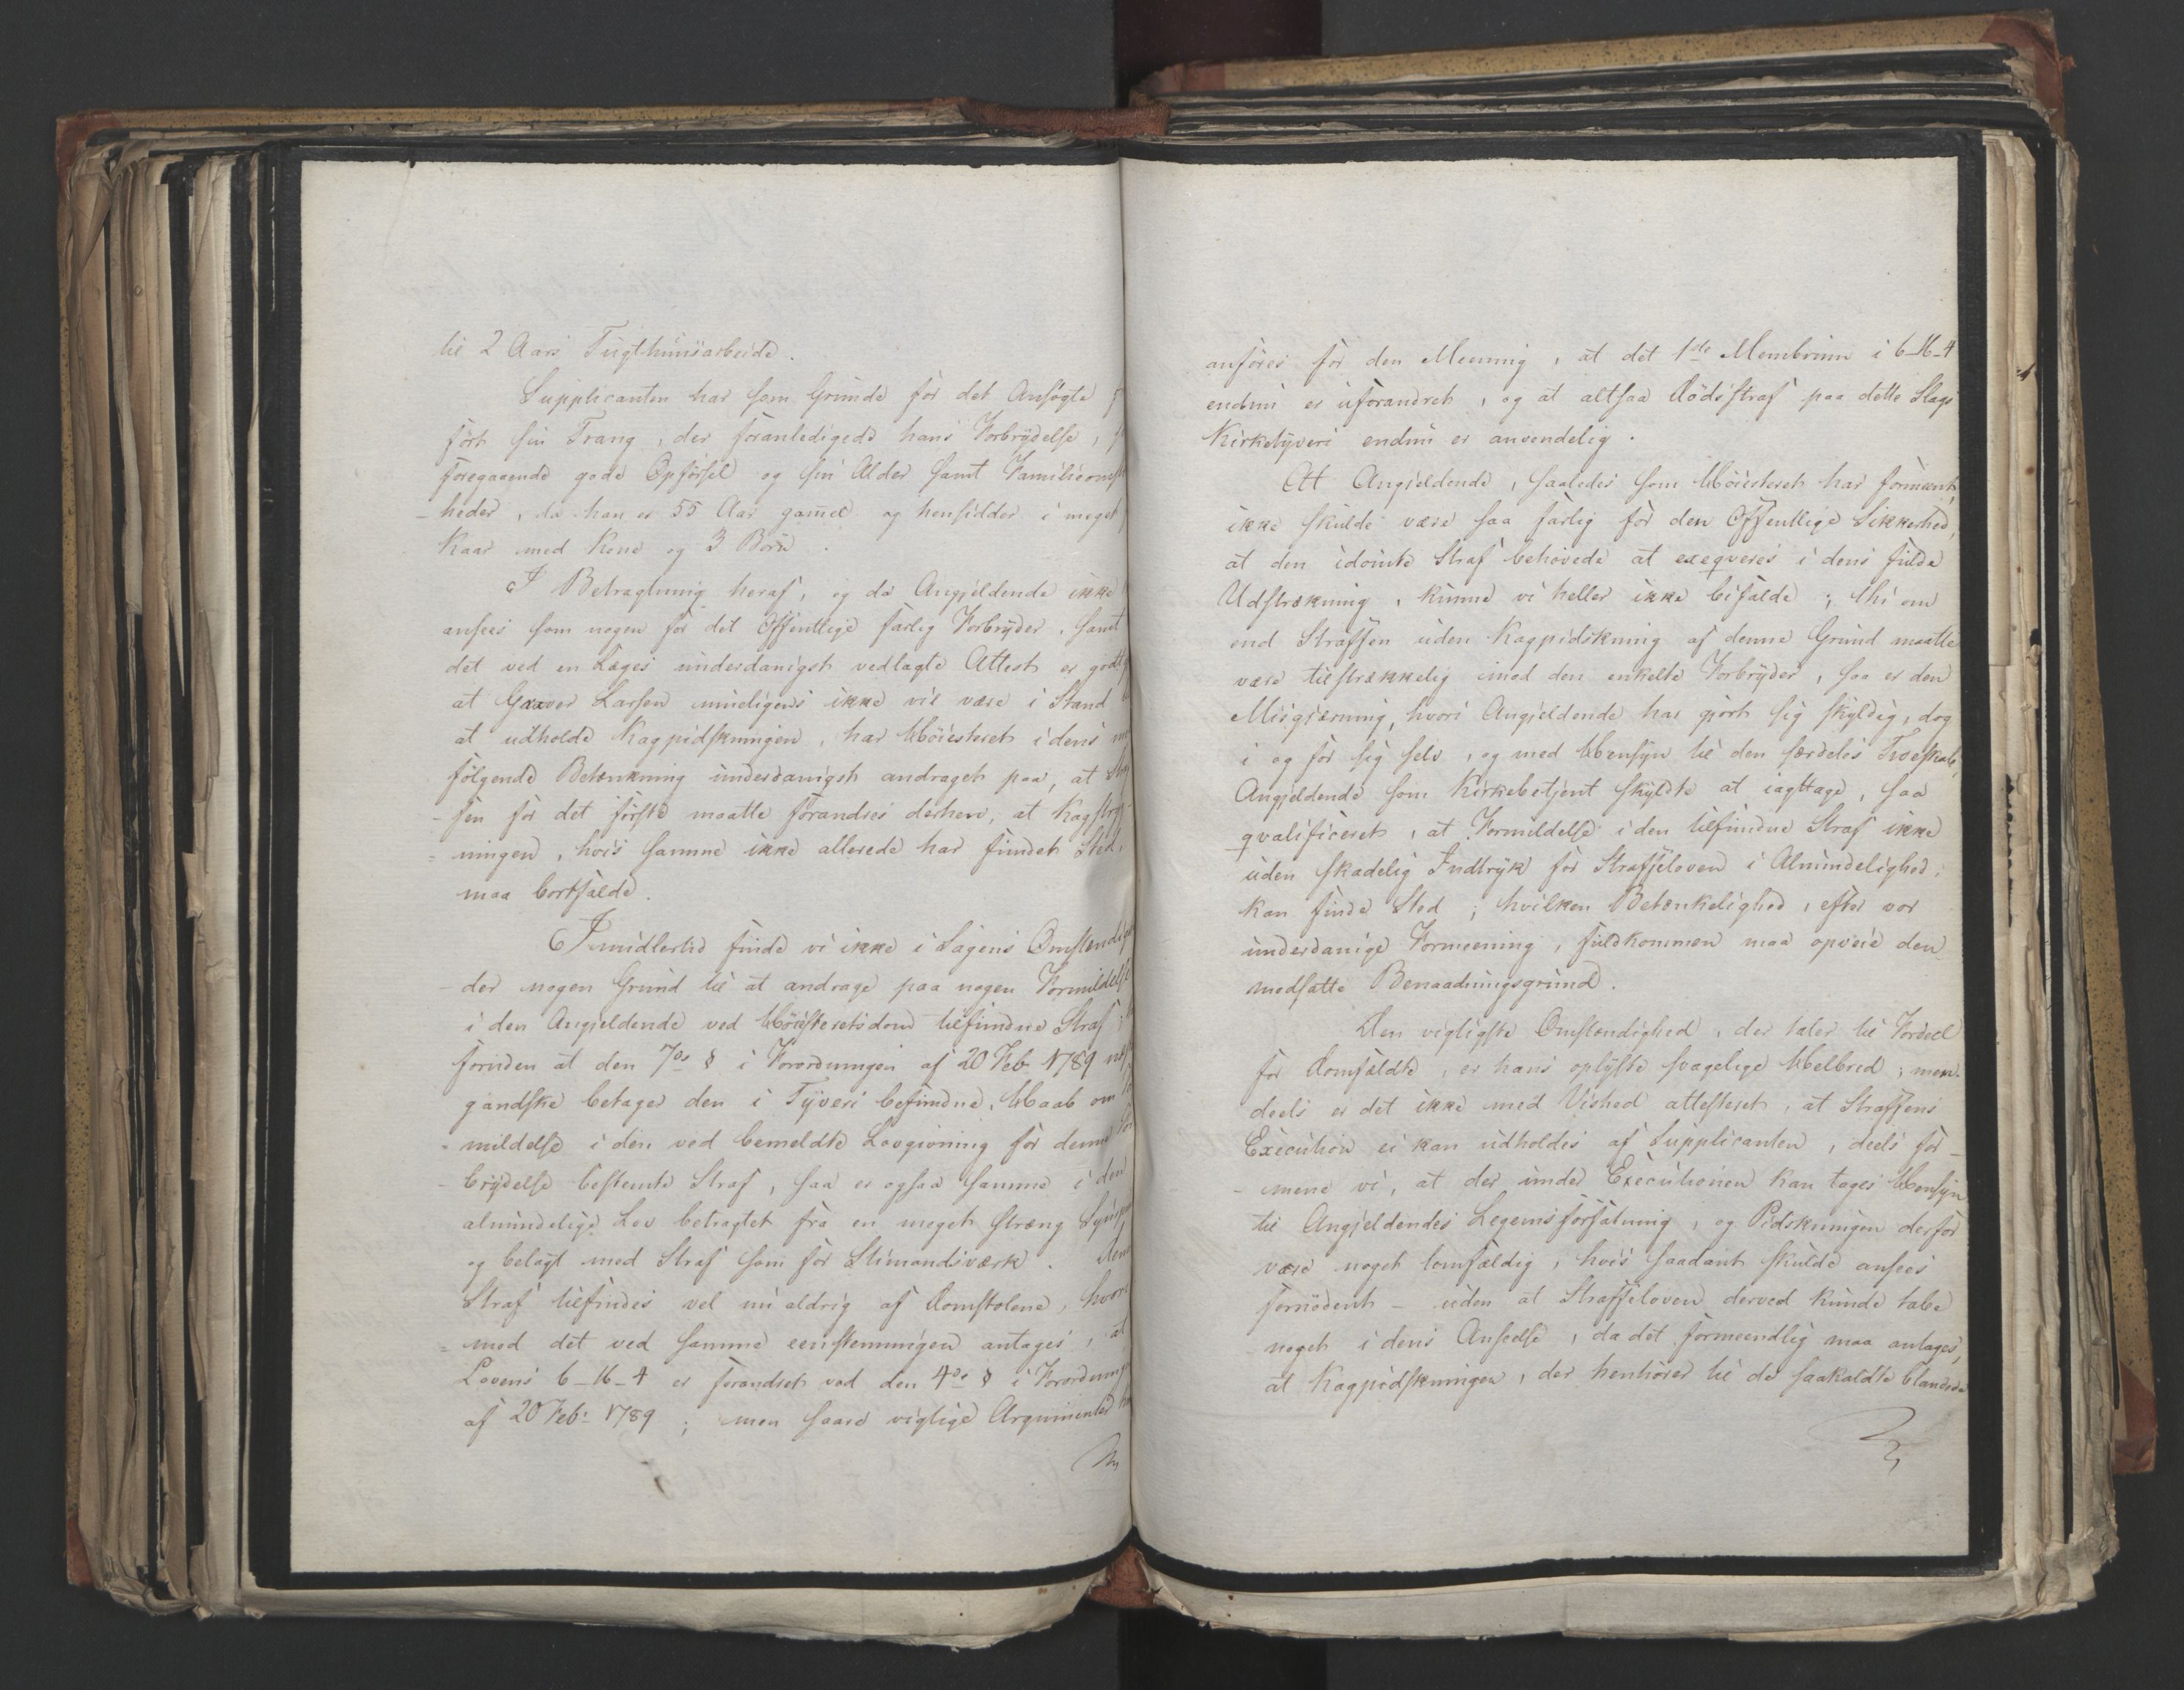 til 2 Aars Tugthuusarbeide.
Supplicanten har som Grunde for det Ansøgte
ført sin Trang, der foranledigede hans Forbrydelse,
foregaaende gode Opførsel og sin Alder samt Familieomst
-heder, da han er 55 Aar gam̄el og hensidder i meget
Kaar med Kone og 3 Børn.
I Betragtning heraf, og da Angjeldende ikke
ansees som nogen for det Offentlige farlig Forbryder, samt
det ved en Læges underdanigst vedlagte Attest er godtg
at Graver Larsen rimeligviis ikke vil være i Stand
at udholde Kagpidskningen, har Høiesteret i dens
følgende Betænkning underdanigst andraget paa, at
-fen for det første maatte forandres derhen, at Kagstry-
=ningen, hvis samme ikke allerede har fundet Sted,
maa bortfalde.
Imidlertid finde vi ikke i Sagens Omstændig
-der nogen Grund til at andrage paa nogen Formildelse
i den Angjeldende ved Høiesteretsdom tilfundne Straf;
foruden at den 7de § i Forordningen af 20 Feb. 1789
gandske betager den i Tyveri befundne, Haab om
-mildelse i den ved bemeldte Lovgivning for denne For
-brydelse bestemte Straf, saa er ogsaa samme i den
almindelige Lov betragtet fra en meget stræng Synsp
og belagt med Straf som for Stimandsværk. Den
Straf tilfindes vel nu aldrig af Domstolene, hvori
=mod det ved samme eenstemmigen antages, at
Lovens 6-16-4 er forandret ved den 4de § i Forordning
af 20 Feb: 1789; men saare vigtige Argumenter
anføres for den Meening, at det 1ste Membrum i 6-16-4
endnu er uforandret, og at altsaa Dødsstraf paa dette Slags
Kirketyveri endnu er anvendelig.
At Angjeldende, saaledes som Høiesteret har formeent,
ikke skulde være saa farlig for den Offentlige Sikkerhed,
at den idømte Straf behøvede at exeqveres i dens fulde
Udstrækning, kunne vi heller ikke bifalde; thi om
end Straffen uden Kagpidskning af denne Grund maatte
være tilstrækkelig imod den enkelte Forbryder, saa er den
Misgjerning, hvori Angjeldende har gjort sig skyldig, dog
i og for sig selv, og med Hensyn til den særdeles Troeskab,
Angjeldende som Kirkebetjent skyldte at iagttage, saa
qvalificeret, at Formildelse i den tilfundne Straf ikke
uden skadelig Indtryk for Straffeloven i Almindelighed,
kan finde Sted; hvilken Betænkelighed, efter vor
underdanige Formeening, fuldkommen maa opveie den
modsatte Benaadningsgrund.
Den vigtigste Omstændighed, der taler til Fordeel
for Domfældte, er hans oplyste svagelige Helbred; men
deels er det ikke med Vished attesteret, at Straffens
Execution ei kan udholdes af Supplicanten, deels for-
-mene vi, at der under Executionen kan tages Hensyn
til Angjeldendes Legemsforfatning, og Pidskningen derfor
være noget lemfældig, hvis saadant skulde ansees
fornødent - uden at Straffeloven derved kunde tabe
noget i dens Anseelse, da det formeendlig maa antages,
at Kagpidskningen, der henhører til de saakaldte blandede